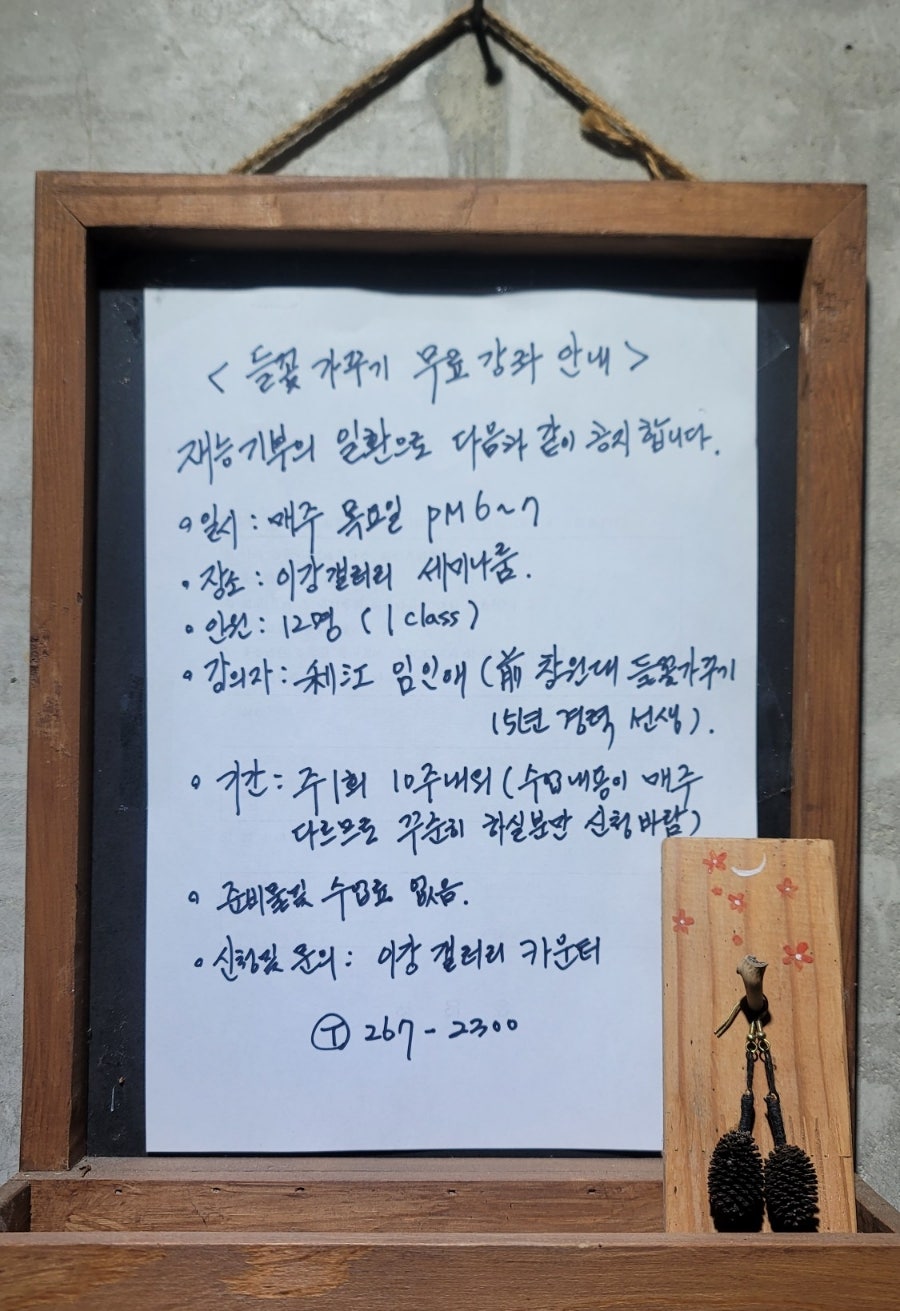 < 들꽃 가꾸기 무료 강좌 안내 >
재능기부의 일환으로 다음과 같이 공지합니다.
• 일시 : 매주 목요일 PM 6~7
• 장소 : 이강갤러리 세미나룸.
• 인원 : 12명 ( 1 class )
• 강의자 : 江 임인애 (前 창원대 들꽃가꾸기
15년 경력 선생).
• 기간 : 주1회 10주내외 (수업내용이 매주
다르므로 꾸준히 하실분만 신청바람)
• 준비물및 수업료 없음.
• 신청및 문의 : 이강 갤러리 카운터
Ⓣ 267 - 2300